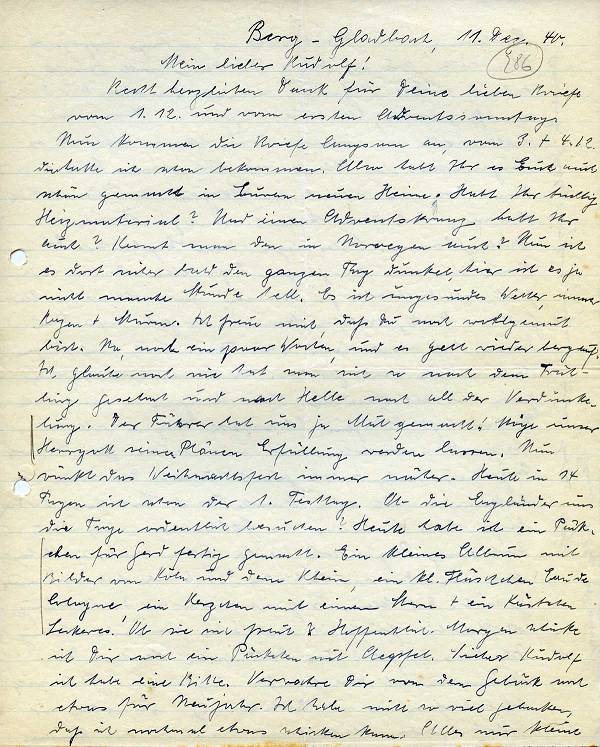 Berg-Gladbach, 11. Dez. 40.
486
Mein lieber Rudolf!
Recht herzlichen Dank für Deine lieben Briefe
vom 1.12. und vom ersten Adventssonntag.
Nun kommen die Briefe langsam an, vom 3. + 4.12.
habe ich schon bekommen. Also habt Ihr es Euch auch
schön gemacht in Eurem neuen Heim. Habt Ihr tüchtig
Heizmaterial? Und einen Adventskranz habt Ihr
auch? Kennt man den in Norwegen auch? Nun ist
es dort sicher bald den ganzen Tag dunkel hier ist es ja
nicht manche Stunde hell. Es ist ungesundes Wetter, immer
Regen + Sturm. Ich freue mich, daß Du noch wohlgemut
bist. Na, noch ein paar Wochen, und es geht wieder bergauf.
Ich glaube noch nie hat man sich so nach dem Früh-
ling gesehnt und nach Helle nach all der Verdunke-
lung. Der Führer hat uns ja Mut gemacht! Möge unser
Herrgott seine Plänen Erfüllung werden lassen. Nun
rückt das Weihnachtsfest immer näher. Heute in 14
Tagen ist schon der 1. Festtag. Ob die Engländer uns
die Tage ordentlich besuchen? Heute habe ich ein Päck-
chen für Gerd fertig gemacht. Ein kleines Album mit
Bilder von Köln und dem Rhein, ein kl. Fläschchen Eau de
Cologne, ein Kerzchen mit einem Stern + ein Kästchen
Leckeres. Ob sie sich freut? Hoffentlich. Morgen schicke
ich Dir noch ein Päckchen mit Aepfel. Lieber Rudolf
ich habe eine Bitte. Verwahre Dir von dem Gebäck noch
etwas für Neujahr. Ich habe nicht so viel gebacken,
daß ich nochmal etwas schicken kann. Alles nur kleine